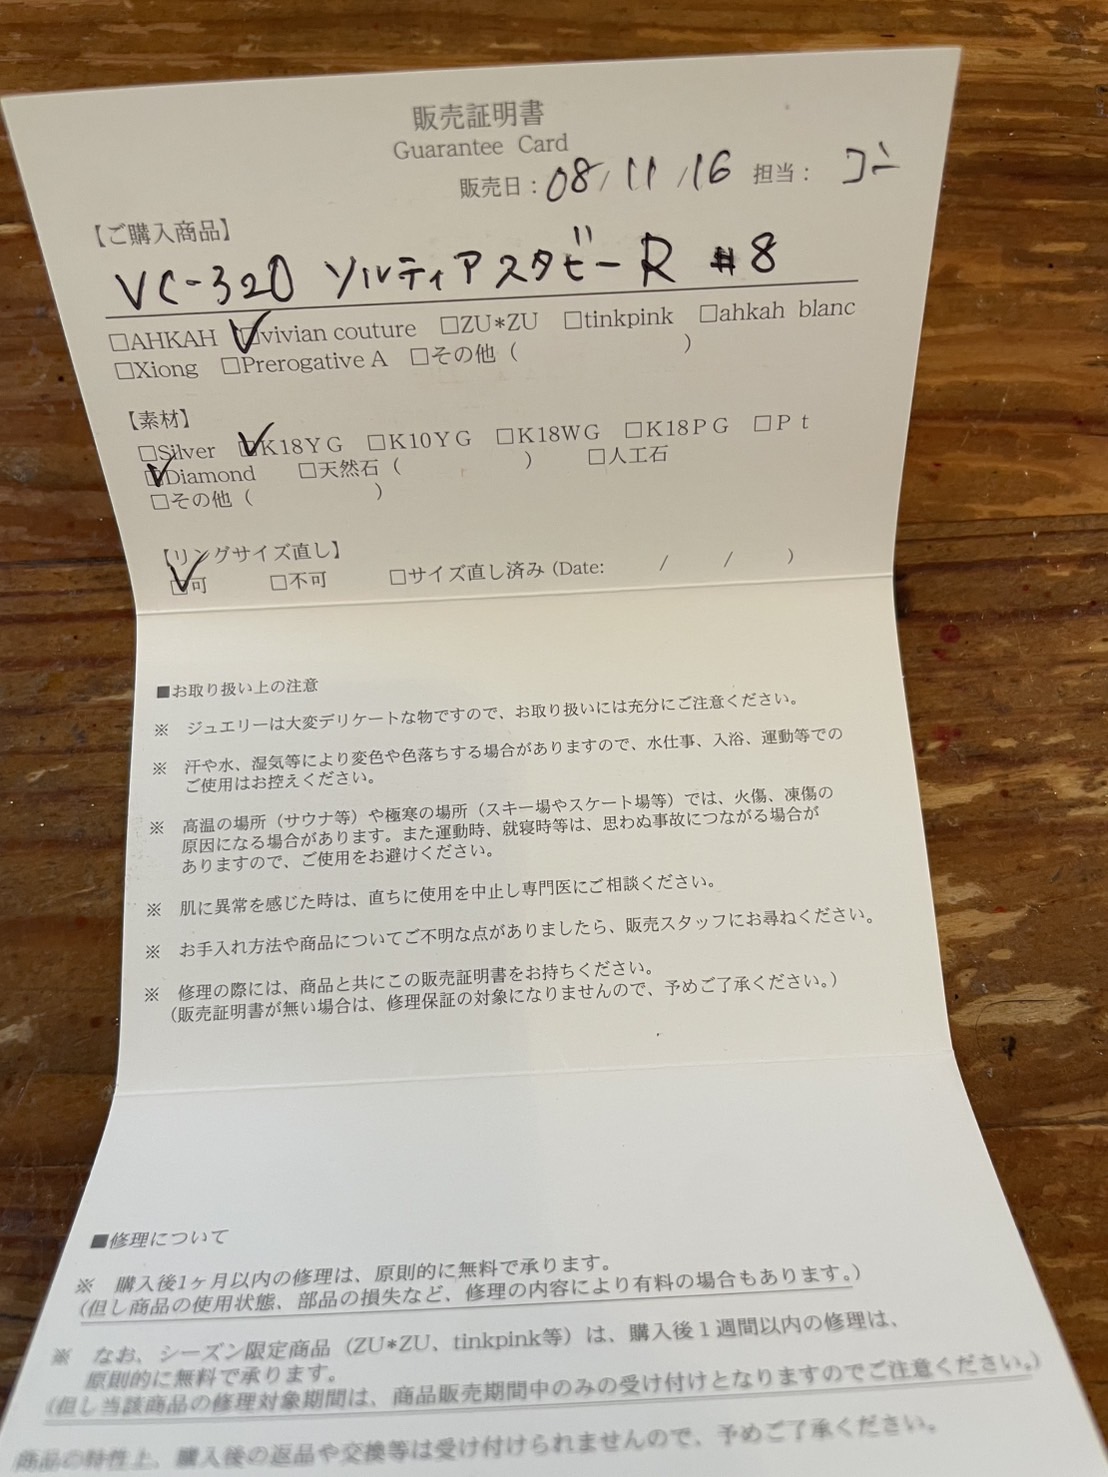 販売証明書
Guarantee Card
販売日：08/11/16 担当：コン
【ご購入商品】
VC-320 ソルティアスタビーR #8
□AHKAH ☑vivian couture □ZU*ZU □tinkpink □ahkah blanc
□Xiong □Prerogative A □その他（ ）
【素材】
□Silver ☑K18YG □K10YG □K18WG □K18PG □Pt
☑Diamond □天然石（ ） □人工石
□その他（ ）
【リングサイズ直し】
☑可 □不可 □サイズ直し済み(Date: / / )
■お取り扱い上の注意
※ ジュエリーは大変デリケートな物ですので、お取り扱いには充分にご注意ください。
※ 汗や水、湿気等により変色や色落ちする場合がありますので、水仕事、入浴、運動等での
ご使用はお控えください。
※ 高温の場所（サウナ等）や極寒の場所（スキー場やスケート場等）では、火傷、凍傷の
原因になる場合があります。また運動時、就寝時等は、思わぬ事故につながる場合が
ありますので、ご使用をお避けください。
※ 肌に異常を感じた時は、直ちに使用を中止し専門医にご相談ください。
※ お手入れ方法や商品についてご不明な点がありましたら、販売スタッフにお尋ねください。
※ 修理の際には、商品と共にこの販売証明書をお持ちください。
（販売証明書が無い場合は、修理保証の対象になりませんので、予めご了承ください。）
■修理について
※ 購入後1ヶ月以内の修理は、原則的に無料で承ります。
（但し商品の使用状態、部品の損失など、修理の内容により有料の場合もあります。）
※ なお、シーズン限定商品（ZU*ZU、tinkpink等）は、購入後１週間以内の修理は、
原則的に無料で承ります。
（但し当該商品の修理対象期間は、商品販売期間中のみの受け付けとなりますのでご注意ください。）
商品の特性上、購入後の返品や交換等は受け付けられませんので、予めご了承ください。